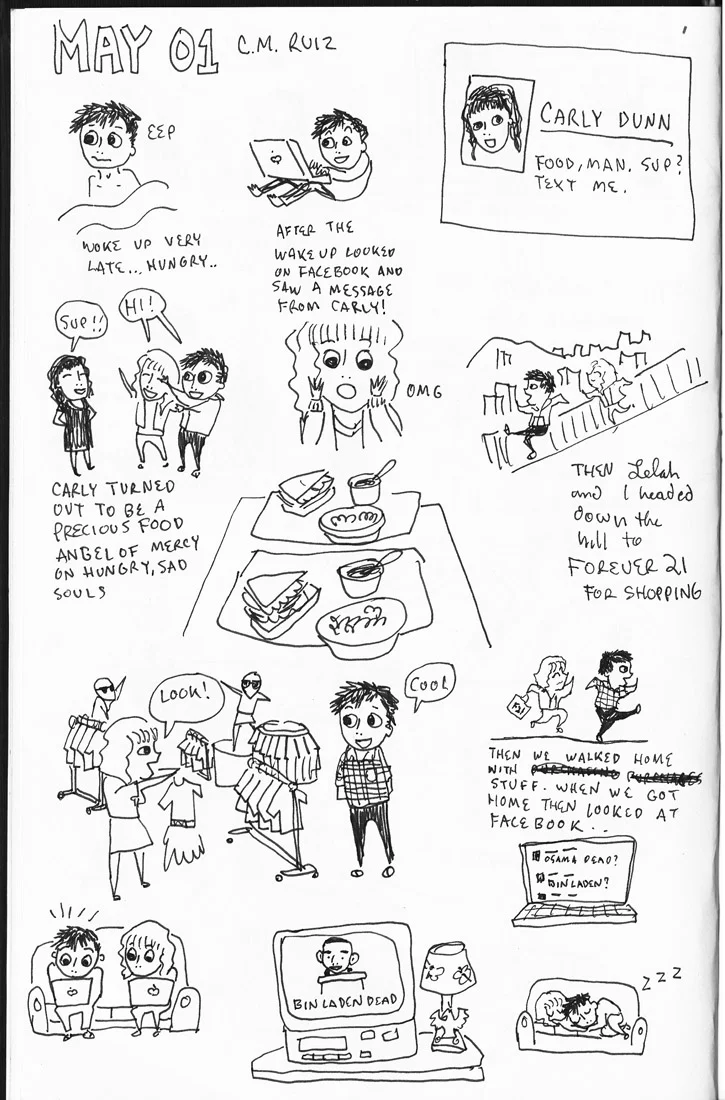 MAY 01 C.M. RUIZ
EEP
WOKE UP VERY
LATE... HUNGRY..
AFTER THE
WAKE UP LOOKED
ON FACEBOOK AND
SAW A MESSAGE
FROM CARLY!
CARLY DUNN
FOOD, MAN. SUP?
TEXT ME.
SUP!!
HI!
CARLY TURNED
OUT TO BE A
PRECIOUS FOOD
ANGEL OF MERCY
ON HUNGRY, SAD
SOULS
OMG
THEN Lelah
and I headed
down the
hill to
FOREVER 21
FOR SHOPPING
LOOK!
COOL
F21
THEN WE WALKED HOME
WITH
STUFF. WHEN WE GOT
HOME THEN LOOKED AT
FACEBOOK...
OSAMA DEAD?
BIN LADEN?
BIN LADEN DEAD
Z Z Z